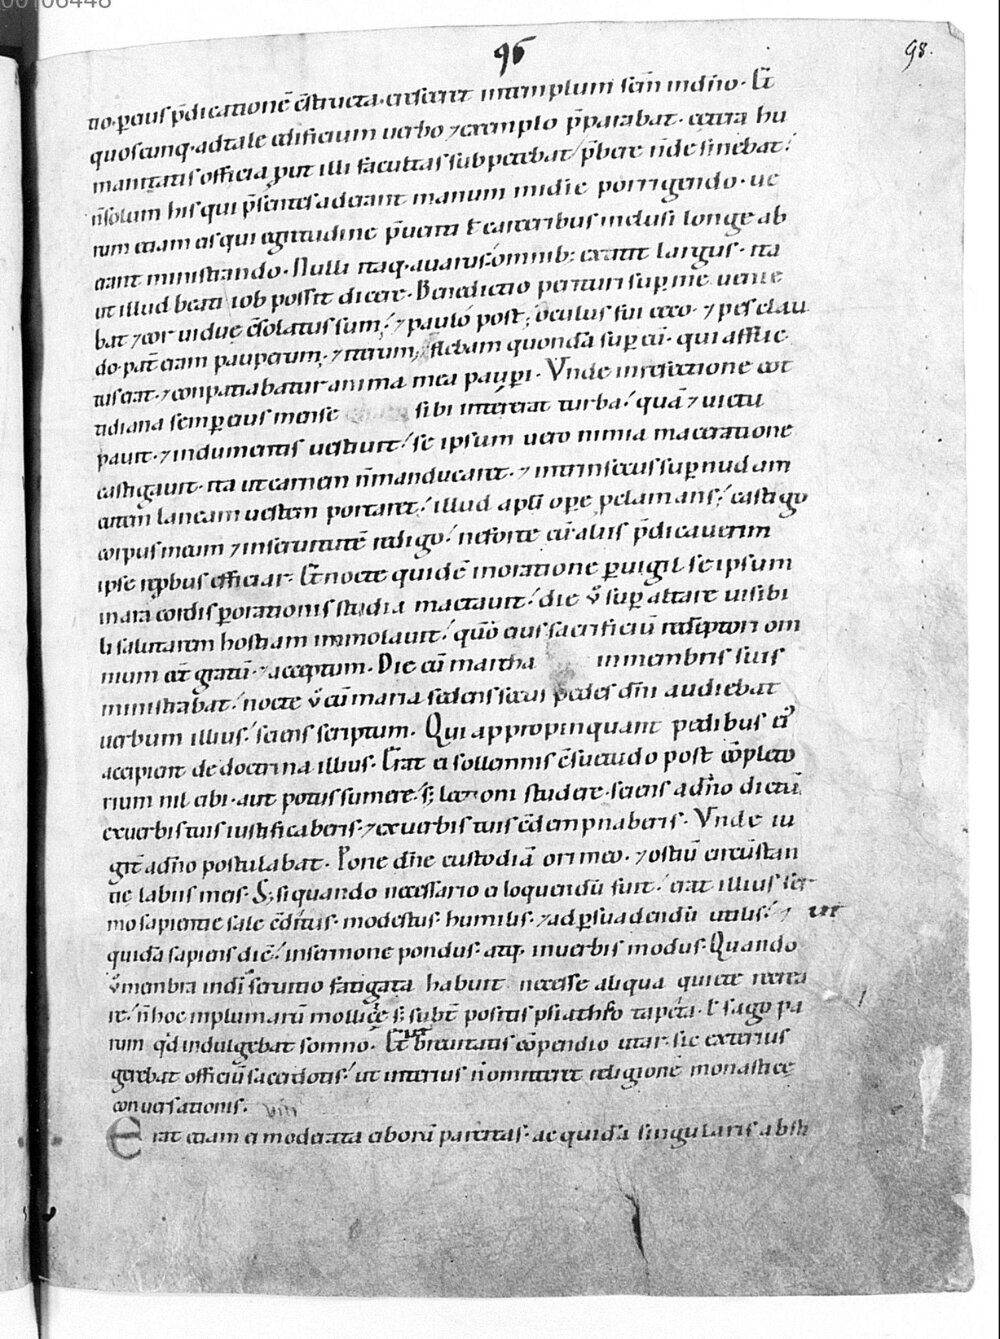 00106448
96
98.
tio· p̲ eius p̄dicationē c̄structa· cresceret in templum sc̄m in dn̄o· Et
quoscunq· ad tale edificium uerbo ⁊ exemplo p̄parabat· cetera hu
manitatis officia put illi facultas suppetebat p̄bere n̄ desinebat·
n̄ solum his qui p̄sentes aderant manum mīdie porrigendo· ue
rum etiam eis qui egritudine p̄uenti ł carceribus inclusi longe ab
erant ministrando· Nulli itaq· auarus: omnib; extitit largus· ita
ut illud beati iob possit dicere· Benedictio perituri sup me uenie
bat ⁊ cor uidue c̄solatus sum; ⁊ paulo post; Oculus fui ceco· ⁊ pes clau
do· pat̄ eram pauperum; ⁊ iterum; flebam quondā sup eū· qui afflic
tus erat· ⁊ conpatiebatur anima mea paupi· Vnde in refectione cot
tidiana semp eius mense sibi intererat turba: quā ⁊ uictu
pauit· ⁊ indumentis uestiuit: se ipsum uero nimia maceratione
castigauit· ita ut carnem n̄ manducaret· ⁊ intrinsecus sup nudam
cutem laneam uestem portaret: illud apl̄i ope pclamans: castigo
corpus meum ⁊ in seruitutē redigo: ne forte cū aliis p̄dicauerim
ipse repbus efficiar· Et nocte quidē in oratione puigil se ipsum
in ara cordis p orationis studia mactauit: die ů sup altare uisibi
li salutarem hostiam immolauit: quō eius sacrificiū redēptori om
nium eēt gratū ⁊ acceptum· Die cū martha in membris suis
ministrabat: nocte ů cū maria sedens secus pedes dn̄i audiebat
uerbum illius: sciens scriptum· Qui appropinquant pedibus ei᾿
accipient de doctrina illius· Erat ei sollemnis c̄suetudo post cōpleto
rium nil cibi· aut potus sumere· s; lectioni studere· sciens a dn̄o dictū
ex uerbis tuis iustificaberis· ⁊ ex uerbis tuis c̄dempnaberis· Vnde iu
git̄ a dn̄o postulabat· Pone dn̄e custodiā ori meo· ⁊ ostiū circūstan
tie labiis meis· S; si quando necessario ei loquendū fuit: erat illius ser
mo sapientie sale c̄ditus· modestus· humilis· ⁊ ad psuadendū utilis: ⁊ ut
quidā sapiens dic̄: in sermone pondus· atq· in uerbis modus· Quando
ů menbra indī seruitio fatigata habuit necesse aliqua quiete recrea
re: n̄ hoc in plumarū mollicie s; subt̄ positis psiathio tapeta· ł sago pa
rum qd̄ indulgebat somno· Et ut breuitatis cōpendio utar· sic exterius
gerebat officiū sacerdotis: ut interius n̄ omitteret religionē monastice
conuersationis. viii
Erat etiam ei moderata ciborū parcitas· ac quidā singularis absti